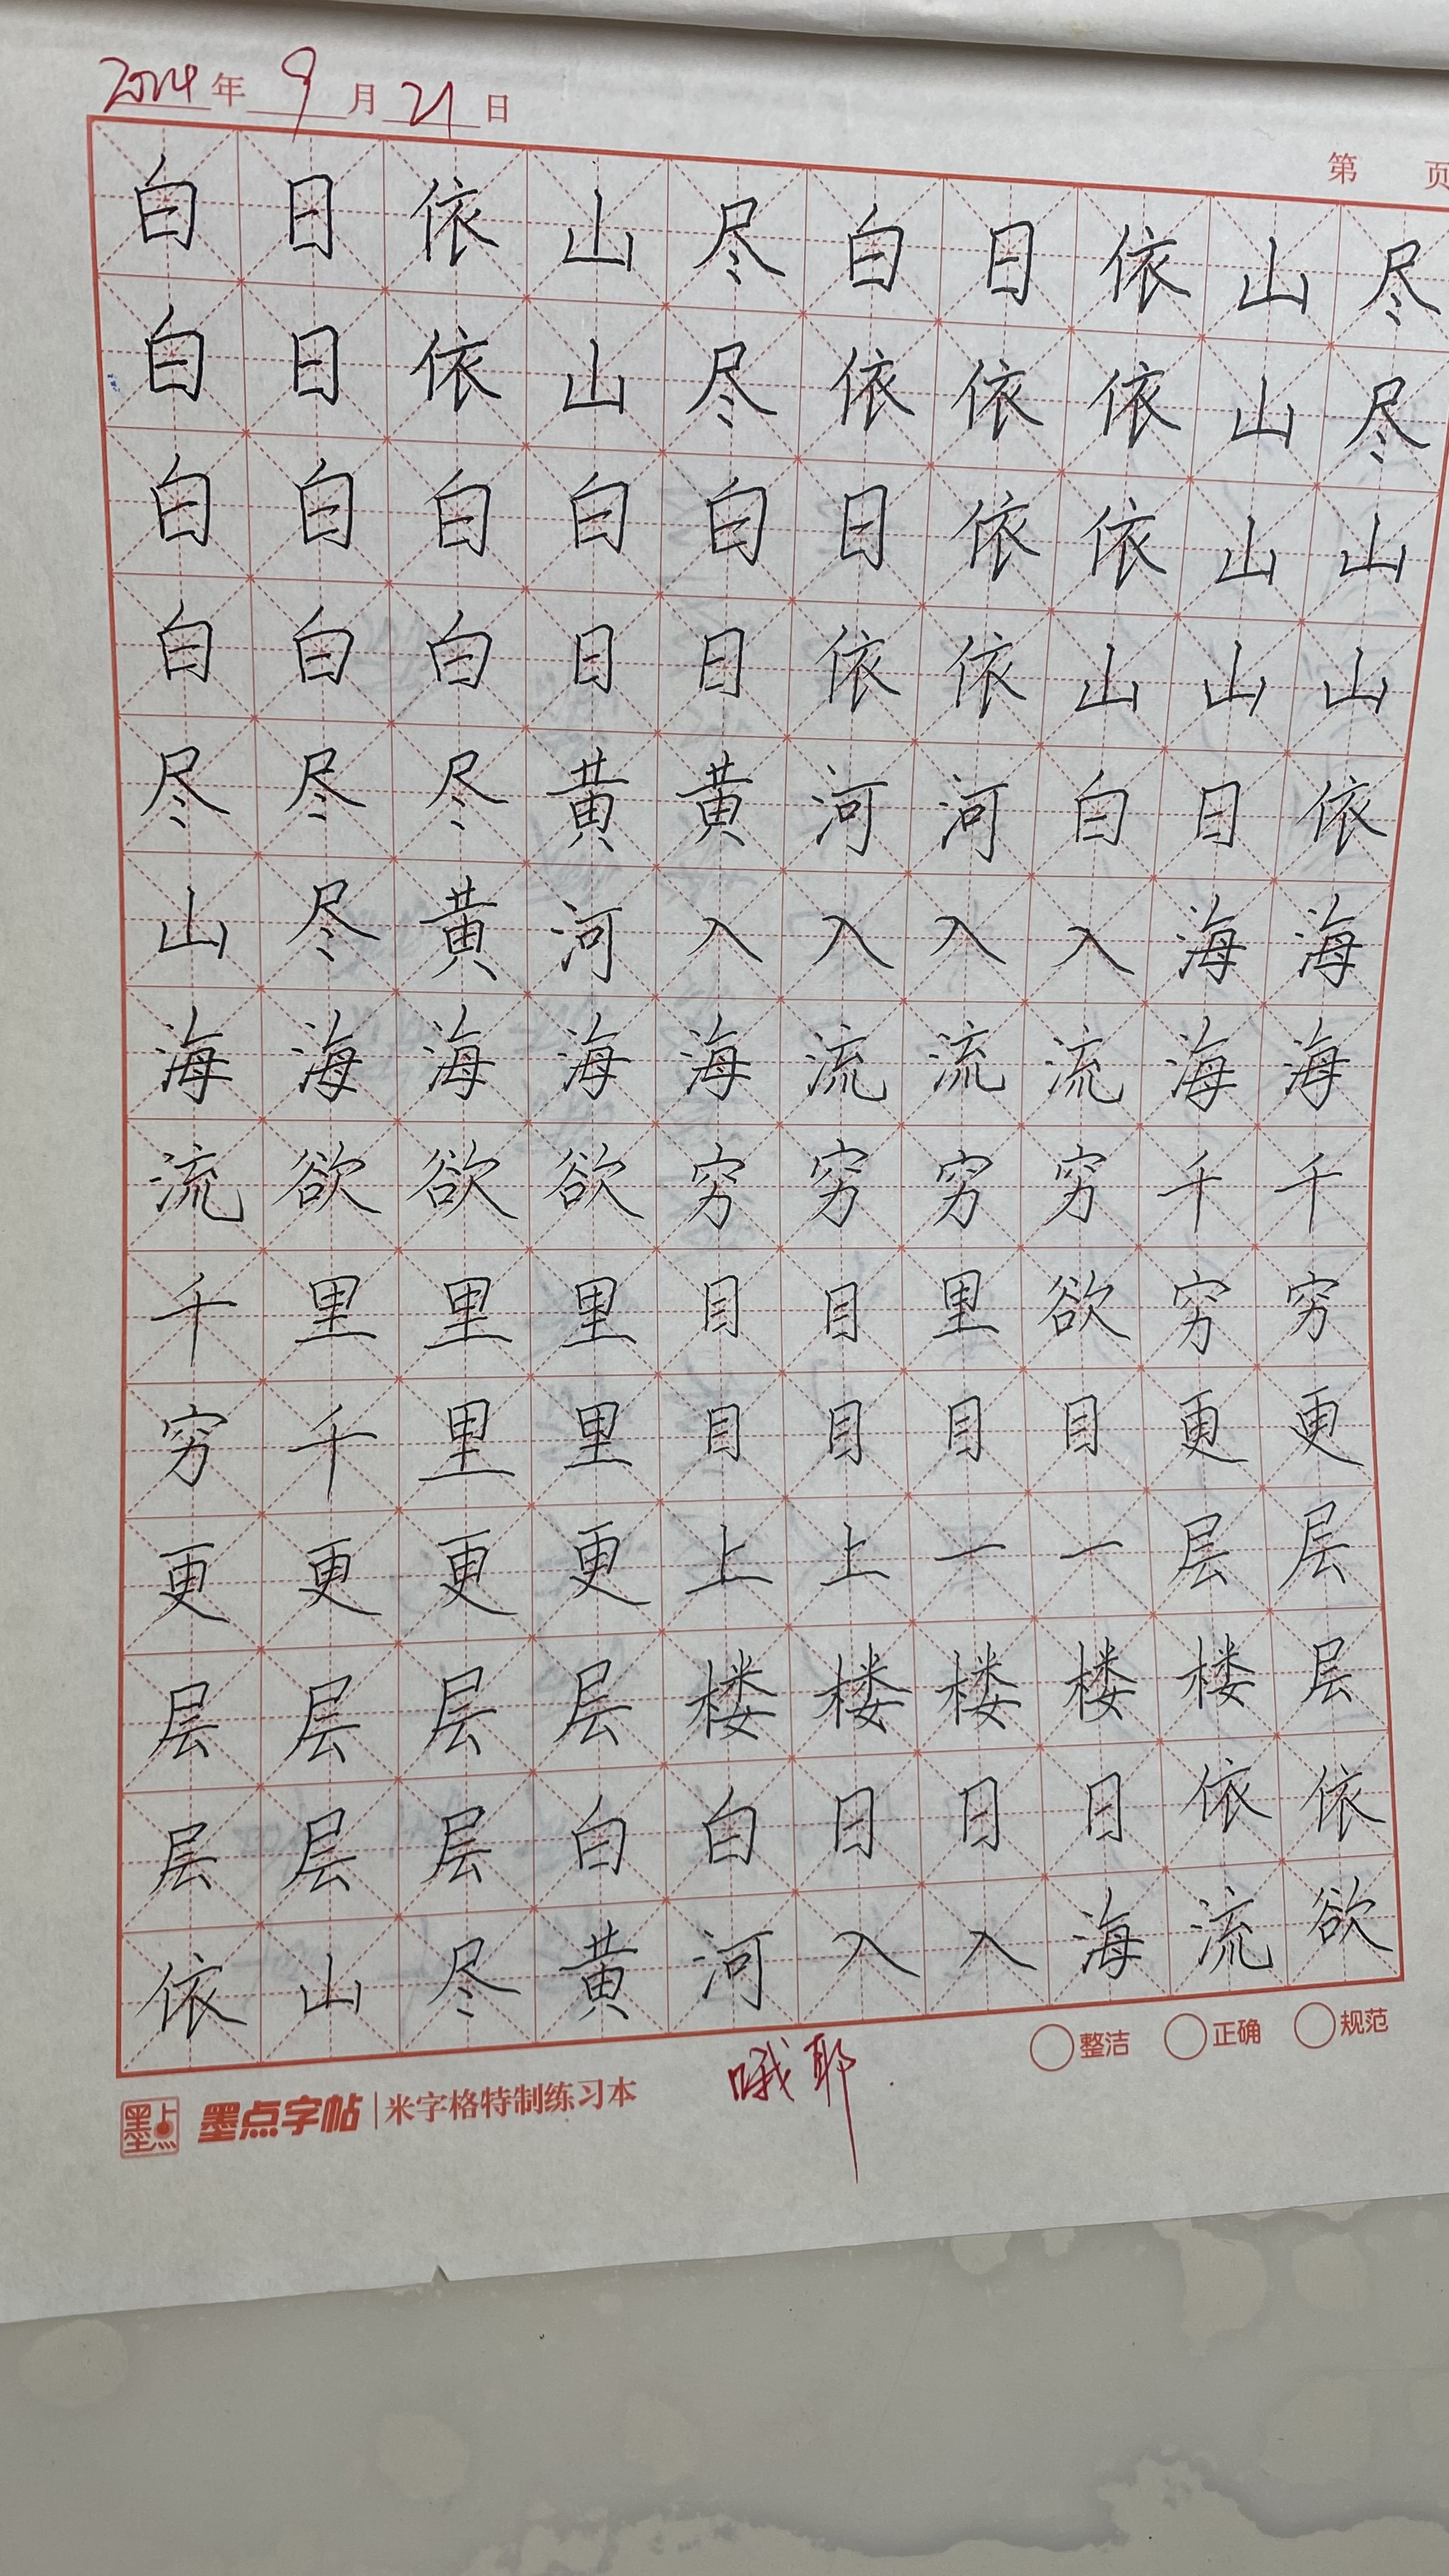 2024年9月21日
第 页
白日依山尽白日依山尽
白日依山尽依依依山尽
白白白白白日依依山山
白白白日日依依山山山
尽尽尽黄黄河河白日依
山尽黄河入入入入海海
海海海海海流流流海海
流欲欲欲穷穷穷穷千千
千里里里目目里欲穷穷
穷千里里目目目目更更
更更更更上上一一层层
层层层层楼楼楼楼楼层
层层层白白日日日依依
依山尽黄河入入海流欲
整洁 正确 规范
墨点 墨点字帖 | 米字格特制练习本 哦耶.